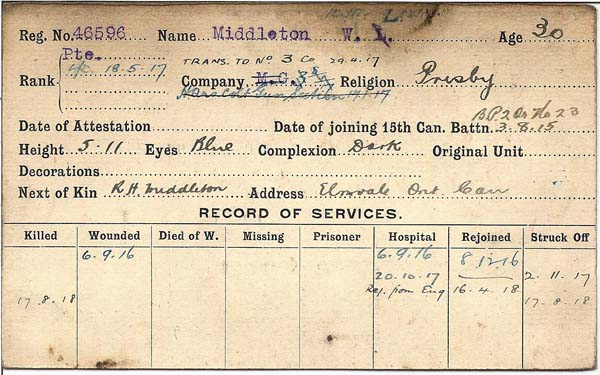 Reg. No. 46596 Name Middleton W. Age 30
Pte.
Rank L/C 18.5.17
TRANS. TO Nº 3 Co 29.4.17
Company M.G. Religion Presby
B.P. 2 No 23
Date of Attestation Date of joining 15th Can. Battn. 3.8.15
Height 5.11 Eyes Blue Complexion Dark Original Unit
Decorations
Next of Kin R.H. Middleton Address Elmvale Ont Can
RECORD OF SERVICES.
Killed Wounded Died of W. Missing Prisoner Hospital Rejoined Struck Off
6.9.16 6.9.16 8.12.16
20.10.17 2.11.17
17.8.18 Rep. from Eng 16.4.18 17.8.18